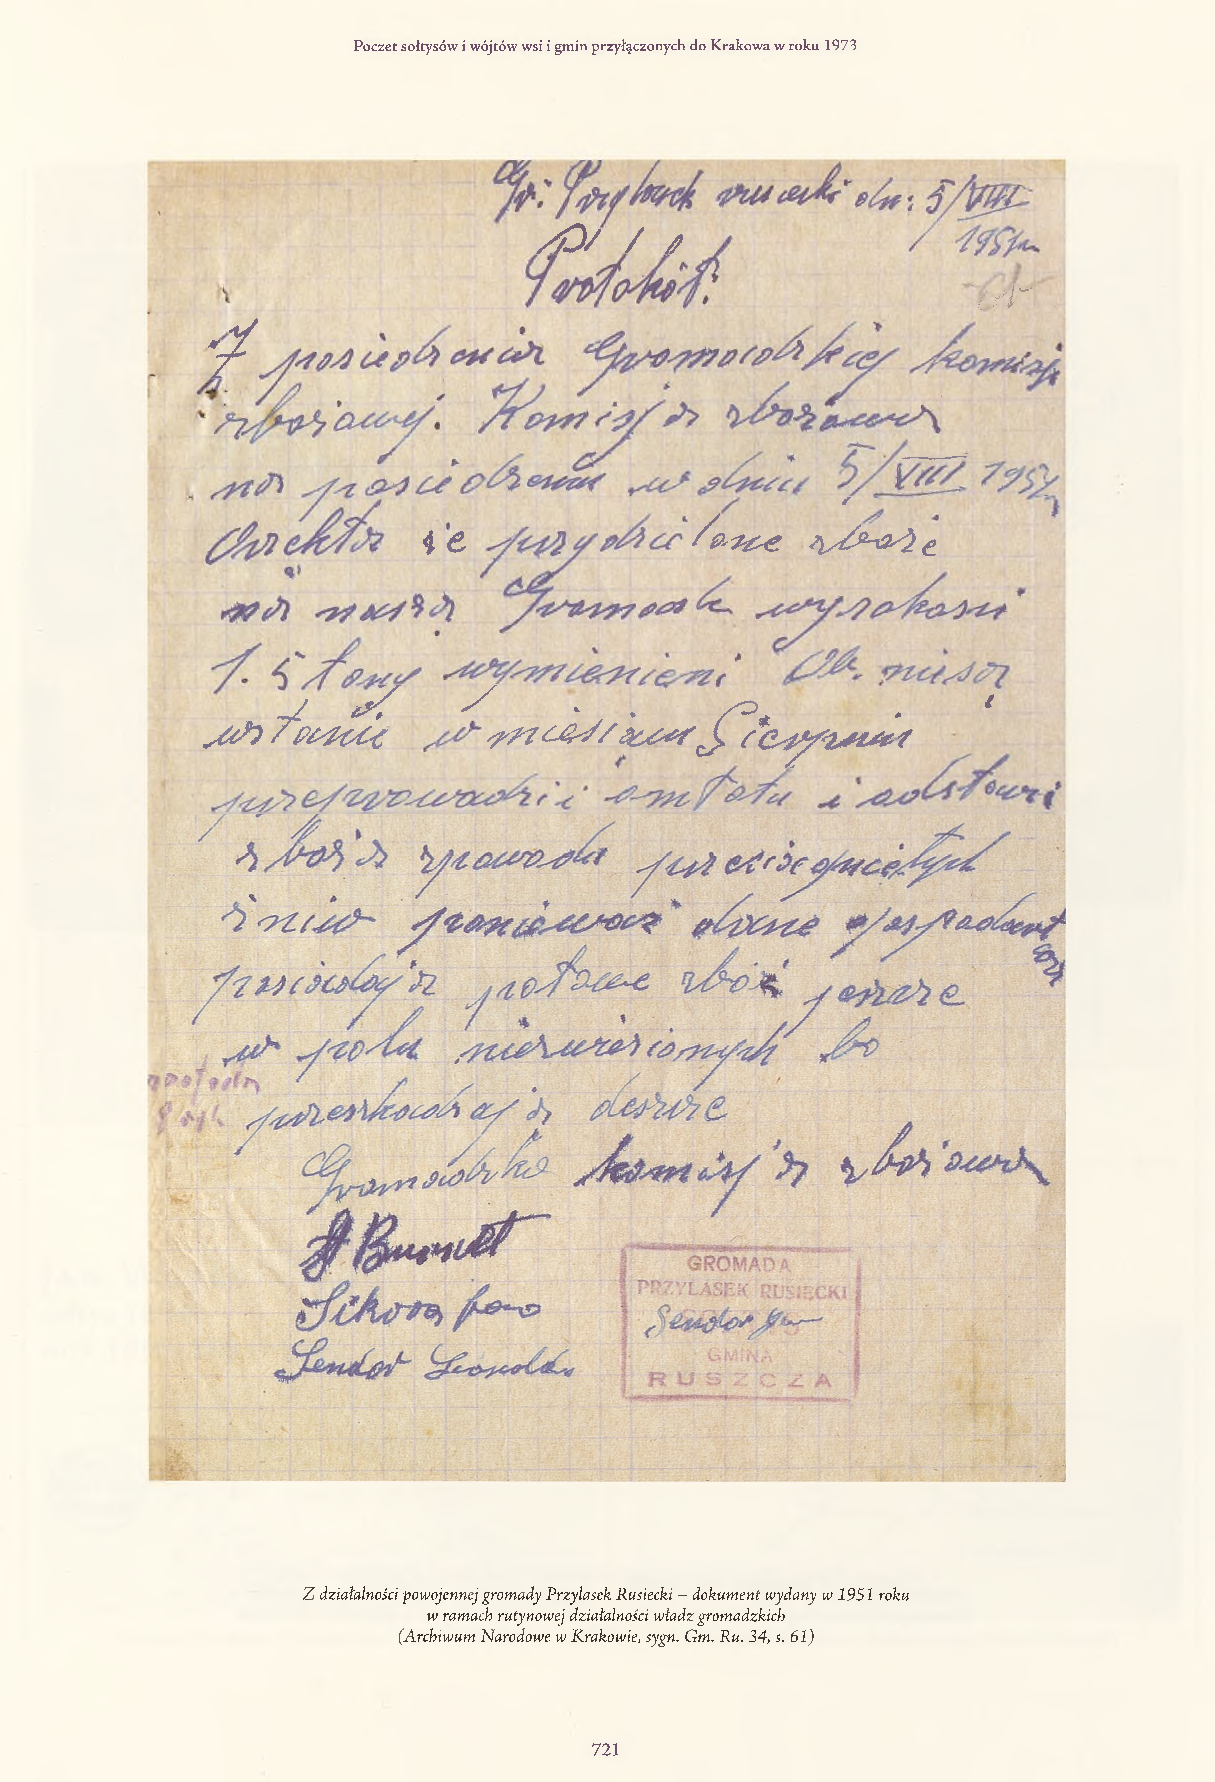 Poczet sołtysów i wójtów wsi i gmin przyłączonych do Krakowa w roku 1973
Gr. Przylasek rusiecki dn: 5/VIII
1951r
Protokół:
61
Z posiedzenia Gromadzkiej komisji
zbożowej. Komisja zbożowa
na posiedzeniu w dniu 5/VIII 1951r
że przydzielone zboże
na nasza Gromade wysokosci
1.5 tony wymienieni Ob. niesą
wstanie w miesiącu Sierpniu
przeprowadzić omłotu i odstawić
zboża zpowodu przeciągniętych
żniw ponieważ dane gospodarstwa
posiadaja połowe zbóż jeszcze
w polu niezwiezionych bo
przeszkadzaja deszcze
Gromadzka komisja zbożowa
Sikora
Sendor
GROMADA
PRZYLASEK RUSIECKI
Sendor
GMINA
RUSZCZA
Z działalności powojennej gromady Przylasek Rusiecki – dokument wydany w 1951 roku
w ramach rutynowej działalności władz gromadzkich
(Archiwum Narodowe w Krakowie, sygn. Gm. Ru. 34, s. 61)
721